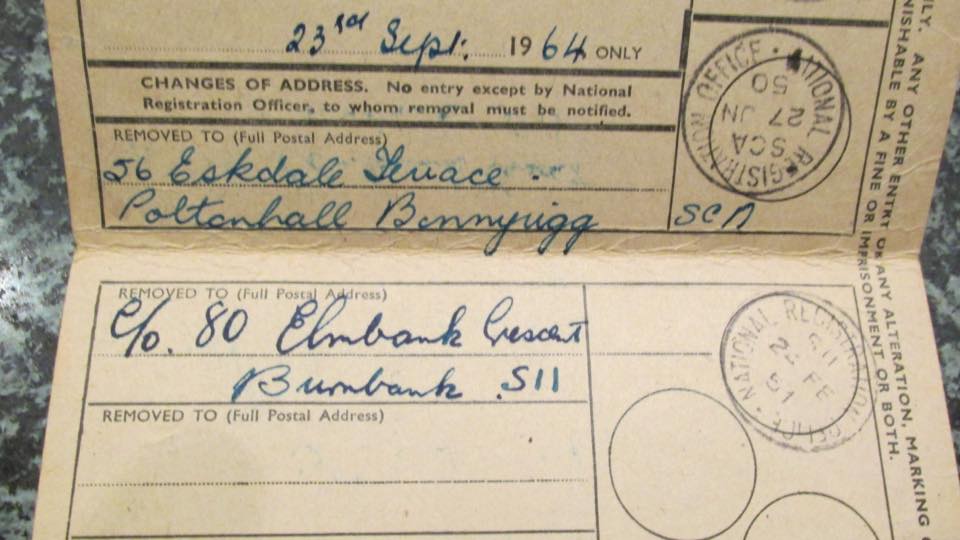 23rd Sept. 1964 ONLY
CHANGES OF ADDRESS. No entry except by National
Registration Officer, to whom removal must be notified.
REMOVED TO (Full Postal Address)
56 Eskdale Terrace.
Poltonhall Bonnyrigg SCA
NATIONAL REGISTRATION OFFICE
SCA
27 JN
50
REMOVED TO (Full Postal Address)
C/o. 80 Elmbank Crescent
Burnbank. S11
NATIONAL REGISTRATION OFFICE
FE
51
REMOVED TO (Full Postal Address)
NLY. ANY OTHER ENTRY OR ANY ALTERATION, MARKING
NISHABLE BY A FINE OR IMPRISONMENT OR BOTH.